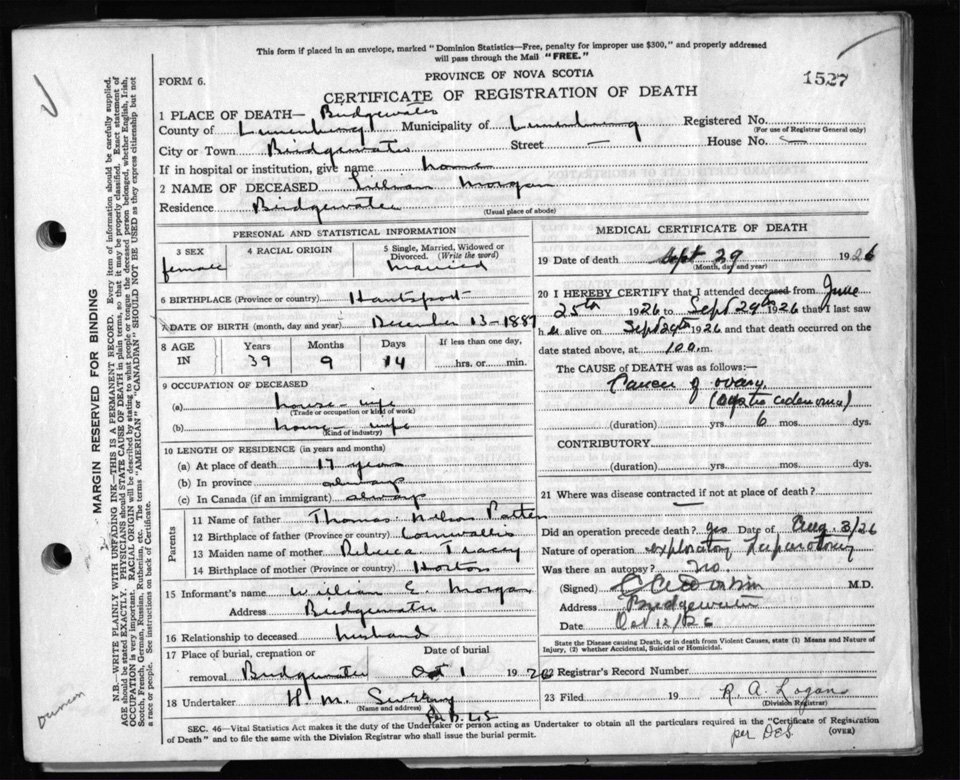 This form if placed in an envelope, marked "Dominion Statistics—Free, penalty for improper use $300," and properly addressed
will pass through the Mail "FREE."
PROVINCE OF NOVA SCOTIA
FORM 6.
1527
CERTIFICATE OF REGISTRATION OF DEATH
1 PLACE OF DEATH— Bridgewater
County of Lunenburg Municipality of Lunenburg Registered No.
(For use of Registrar General only)
City or Town Bridgewater Street — House No. —
If in hospital or institution, give name home
2 NAME OF DECEASED Lillian Morgan
Residence Bridgewater
(Usual place of abode)
PERSONAL AND STATISTICAL INFORMATION
3 SEX 4 RACIAL ORIGIN 5 Single, Married, Widowed or
Divorced. (Write the word)
female married
6 BIRTHPLACE (Province or country) Hantsport
7 DATE OF BIRTH (month, day and year) December 13-1887
8 AGE Years Months Days If less than one day,
IN 39 9 14 hrs. or min.
9 OCCUPATION OF DECEASED
(a) house-wife
(Trade or occupation or kind of work)
(b) house-wife
(Kind of industry)
10 LENGTH OF RESIDENCE (in years and months)
(a) At place of death 17 years
(b) In province always
(c) In Canada (if an immigrant) always
Parents
11 Name of father Thomas Nelson Patten
12 Birthplace of father (Province or country) Cornwallis
13 Maiden name of mother Rebecca Tracey
14 Birthplace of mother (Province or country) Horton
15 Informant's name William E. Morgan
Address Bridgewater
16 Relationship to deceased husband
17 Place of burial, cremation or Date of burial
removal Bridgewater Oct 1 1926
18 Undertaker H. M.
(Name and address)
MEDICAL CERTIFICATE OF DEATH
19 Date of death Sept 29 1926
(Month, day and year)
20 I HEREBY CERTIFY that I attended deceased from June
25th 1926 to Sept 29th 1926 that I last saw
h er alive on Sept 29th 1926 and that death occurred on
date stated above, at m.
The CAUSE OF DEATH was as follows:—
Cancer of ovary
(duration) yrs. 6 mos. dys.
CONTRIBUTORY
(duration) yrs. mos. dys.
21 Where was disease contracted if not at place of death?
Did an operation precede death? yes Date of Aug. 3/26
Nature of operation exploratory Laparotomy
Was there an autopsy? no.
(Signed) M.D.
Address Bridgewater
Date Oct 12/26
State the Disease causing Death, or in death from Violent Causes, state (1) Means and Nature of
Injury, (2) whether Accidental, Suicidal or Homicidal.
22 Registrar's Record Number
23 Filed 19 R. A. Logan
(Division Registrar)
per DES
SEC. 46—Vital Statistics Act makes it the duty of the Undertaker or person acting as Undertaker to obtain all the particulars required in the "Certificate of Registration
of Death" and to file the same with the Division Registrar who shall issue the burial permit.
(OVER)
MARGIN RESERVED FOR BINDING
N.B.—WRITE PLAINLY WITH UNFADING INK—THIS IS A PERMANENT RECORD. Every item of information should be carefully supplied.
AGE should be stated EXACTLY. PHYSICIANS should STATE CAUSE OF DEATH in plain terms, so that it may be properly classified. Exact statement of
OCCUPATION is very important. RACIAL ORIGIN will be described by stating to what people or tongue the deceased person belonged, whether English, Irish,
Scotch, French, German, Russian, Ruthenian, etc. The terms "AMERICAN" or "CANADIAN" SHOULD NOT BE USED as they express citizenship but not
a race or people. See instructions on back of Certificate.
Duncan